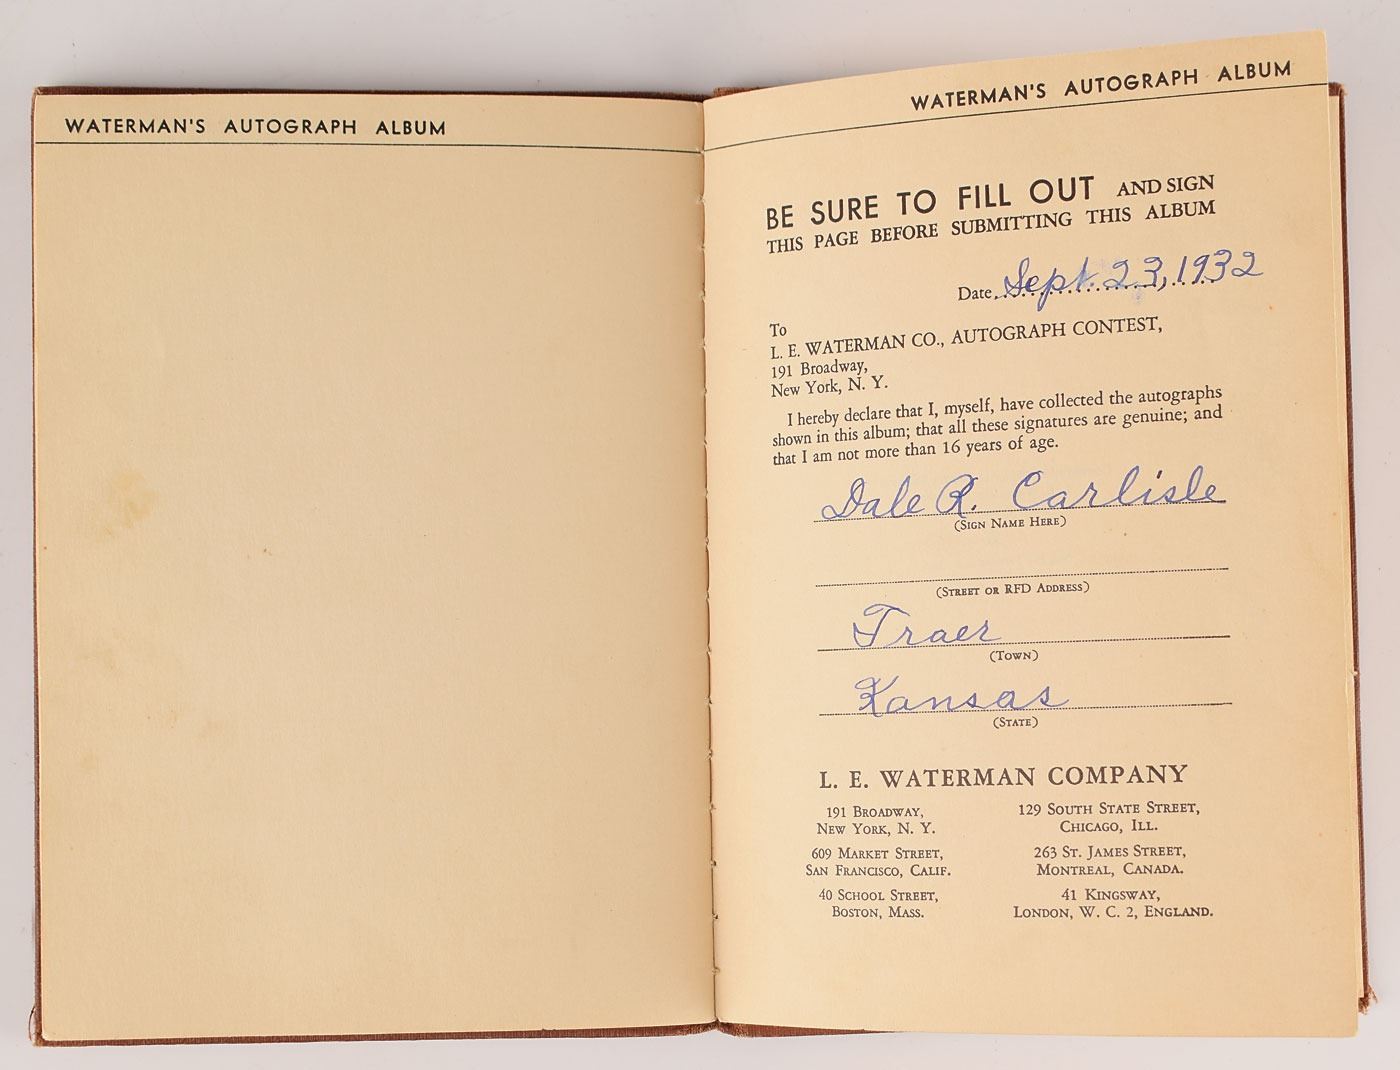 WATERMAN'S AUTOGRAPH ALBUM
WATERMAN'S AUTOGRAPH ALBUM
BE SURE TO FILL OUT AND SIGN
THIS PAGE BEFORE SUBMITTING THIS ALBUM
Date Sept. 23, 1932
To
L. E. WATERMAN CO., AUTOGRAPH CONTEST,
191 Broadway,
New York, N. Y.
I hereby declare that I, myself, have collected the autographs
shown in this album; that all these signatures are genuine; and
that I am not more than 16 years of age.
Dale R. Carlisle
(SIGN NAME HERE)
(STREET OR RFD ADDRESS)
Traer
(TOWN)
Kansas
(STATE)
L. E. WATERMAN COMPANY
191 BROADWAY,
NEW YORK, N. Y.
609 MARKET STREET,
SAN FRANCISCO, CALIF.
40 SCHOOL STREET,
BOSTON, MASS.
129 SOUTH STATE STREET,
CHICAGO, ILL.
263 ST. JAMES STREET,
MONTREAL, CANADA.
41 KINGSWAY,
LONDON, W. C. 2, ENGLAND.